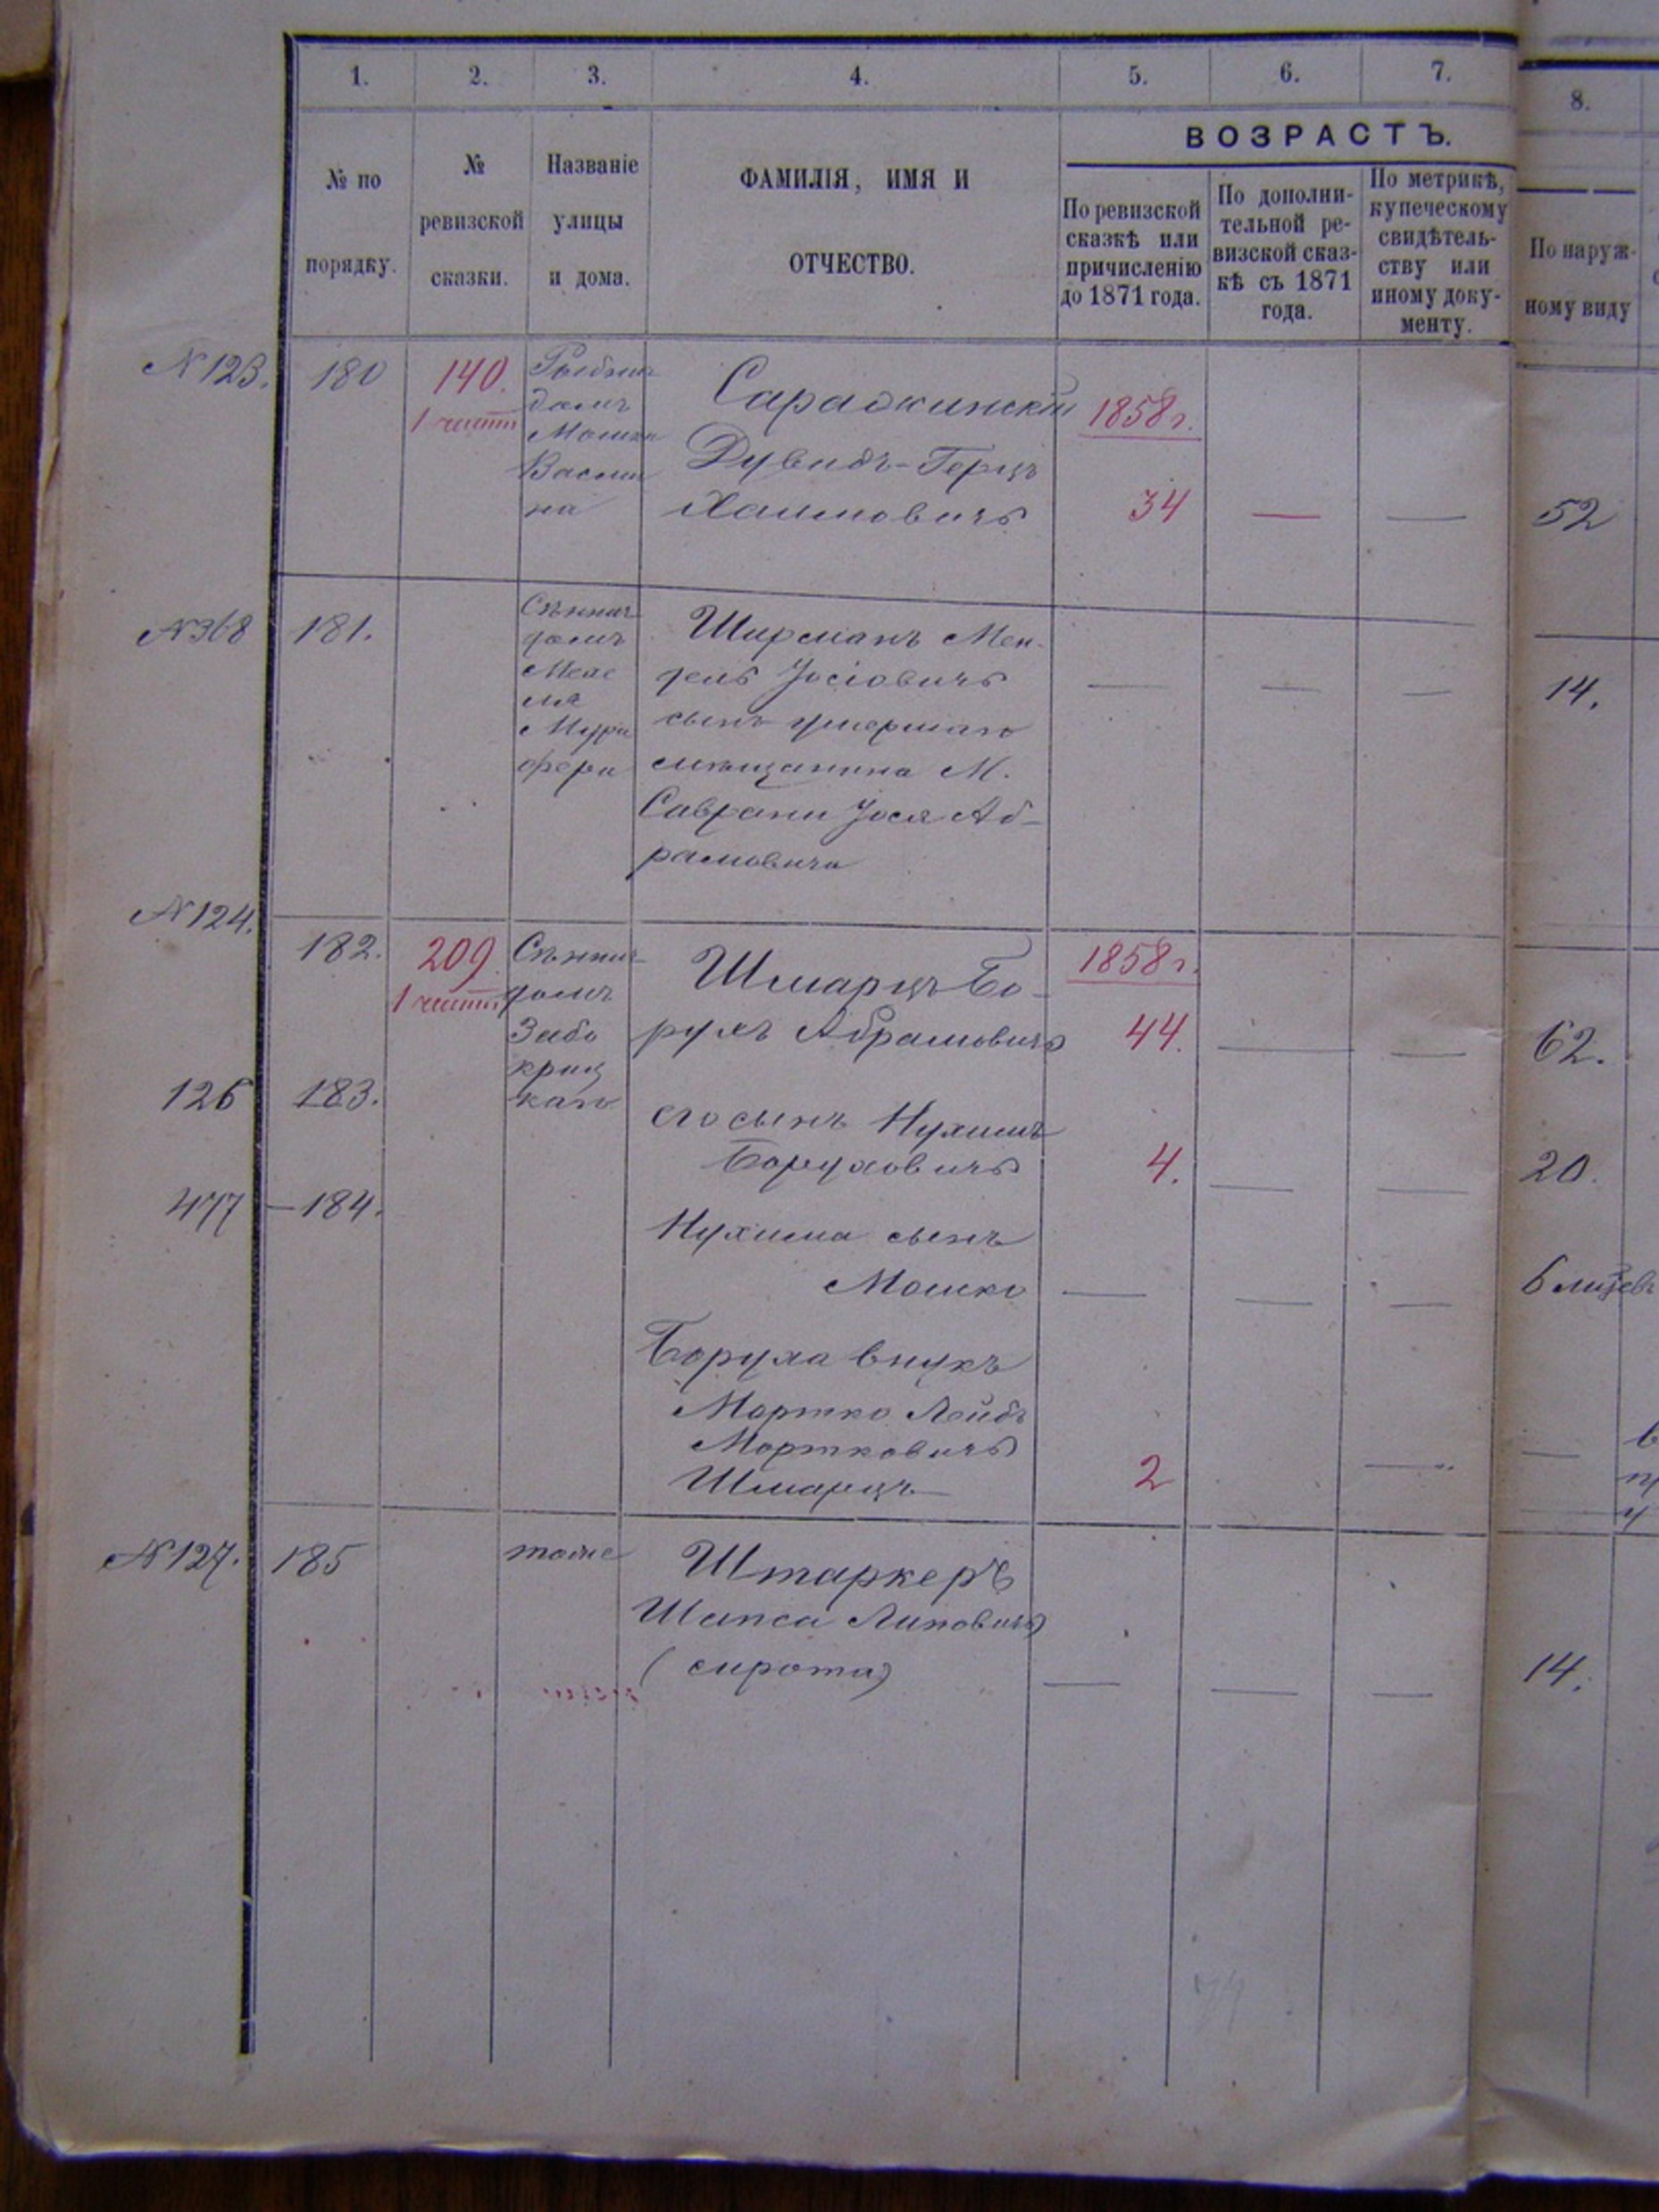 1. 2. 3. 4. 5. 6. 7. 8.
ВОЗРАСТЪ.
№ по порядку.
№ ревизской сказки.
Названіе улицы и дома.
ФАМИЛІЯ, ИМЯ И ОТЧЕСТВО.
По ревизской сказкѣ или причисленію до 1871 года.
По дополни-тельной ре-визской сказ-кѣ съ 1871 года.
По метрикѣ, купеческому свидѣтель-ству или иному доку-менту.
По наруж-ному виду
N 123. 180 140.
1 части
домъ
Мошка
на
Сараджинскій 1858 г.
Дувидъ-Герцъ
Хаимовичъ 34 — — 52
N 368 181.
домъ
Ширманъ Мен-
дель Іосіовичъ — — — 14.
сынъ умершаго
мѣщанина М.
Саврани Іося Аб-
рамовича
N 124.
182. 209. 1858 г.
1 части
домъ
Забо
криц
каго
Шмарцъ Бо-
рухъ Абрамовичъ 44. — — 62.
126 183.
его сынъ Нухимъ
Боруховичъ 4. — — 20.
477 — 184.
Нухима сынъ
Мошко — — —
Боруха внукъ
Мортко Лейбъ
Мортковичъ
Шмарцъ 2 — —
N 127. 185 тоже Штаркеръ
Шапса Липовичъ
(сирота) — — — 14.